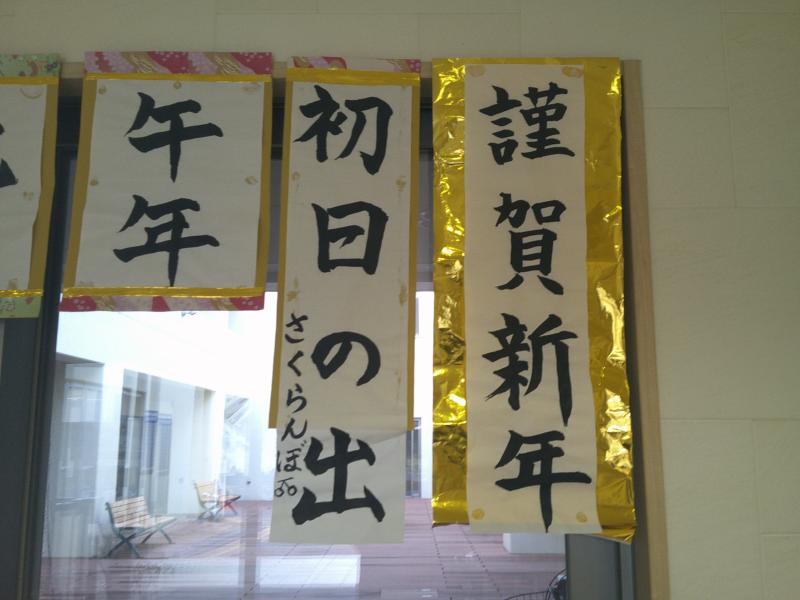 謹賀新年
初日の出
さくらんぼ
午年